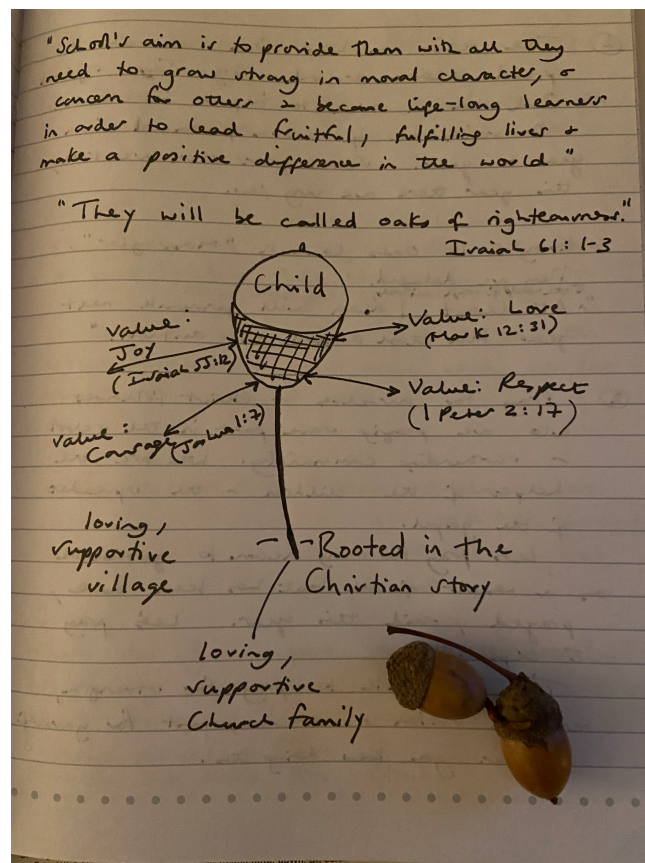 "School's aim is to provide them with all they
need to grow strong in moral character, a
concern for others & become life-long learners
in order to lead fruitful, fulfilling lives &
make a positive difference in the world"
"They will be called oaks of righteousness."
Isaiah 61:1-3
Child
Value:
Joy
(Isaiah 55:12)
Value: Love
(Mark 12:31)
Value: Respect
(1 Peter 2:17)
Value:
Courage (Joshua 1:7)
loving,
supportive
village
Rooted in the
Christian story
loving,
supportive
Church family